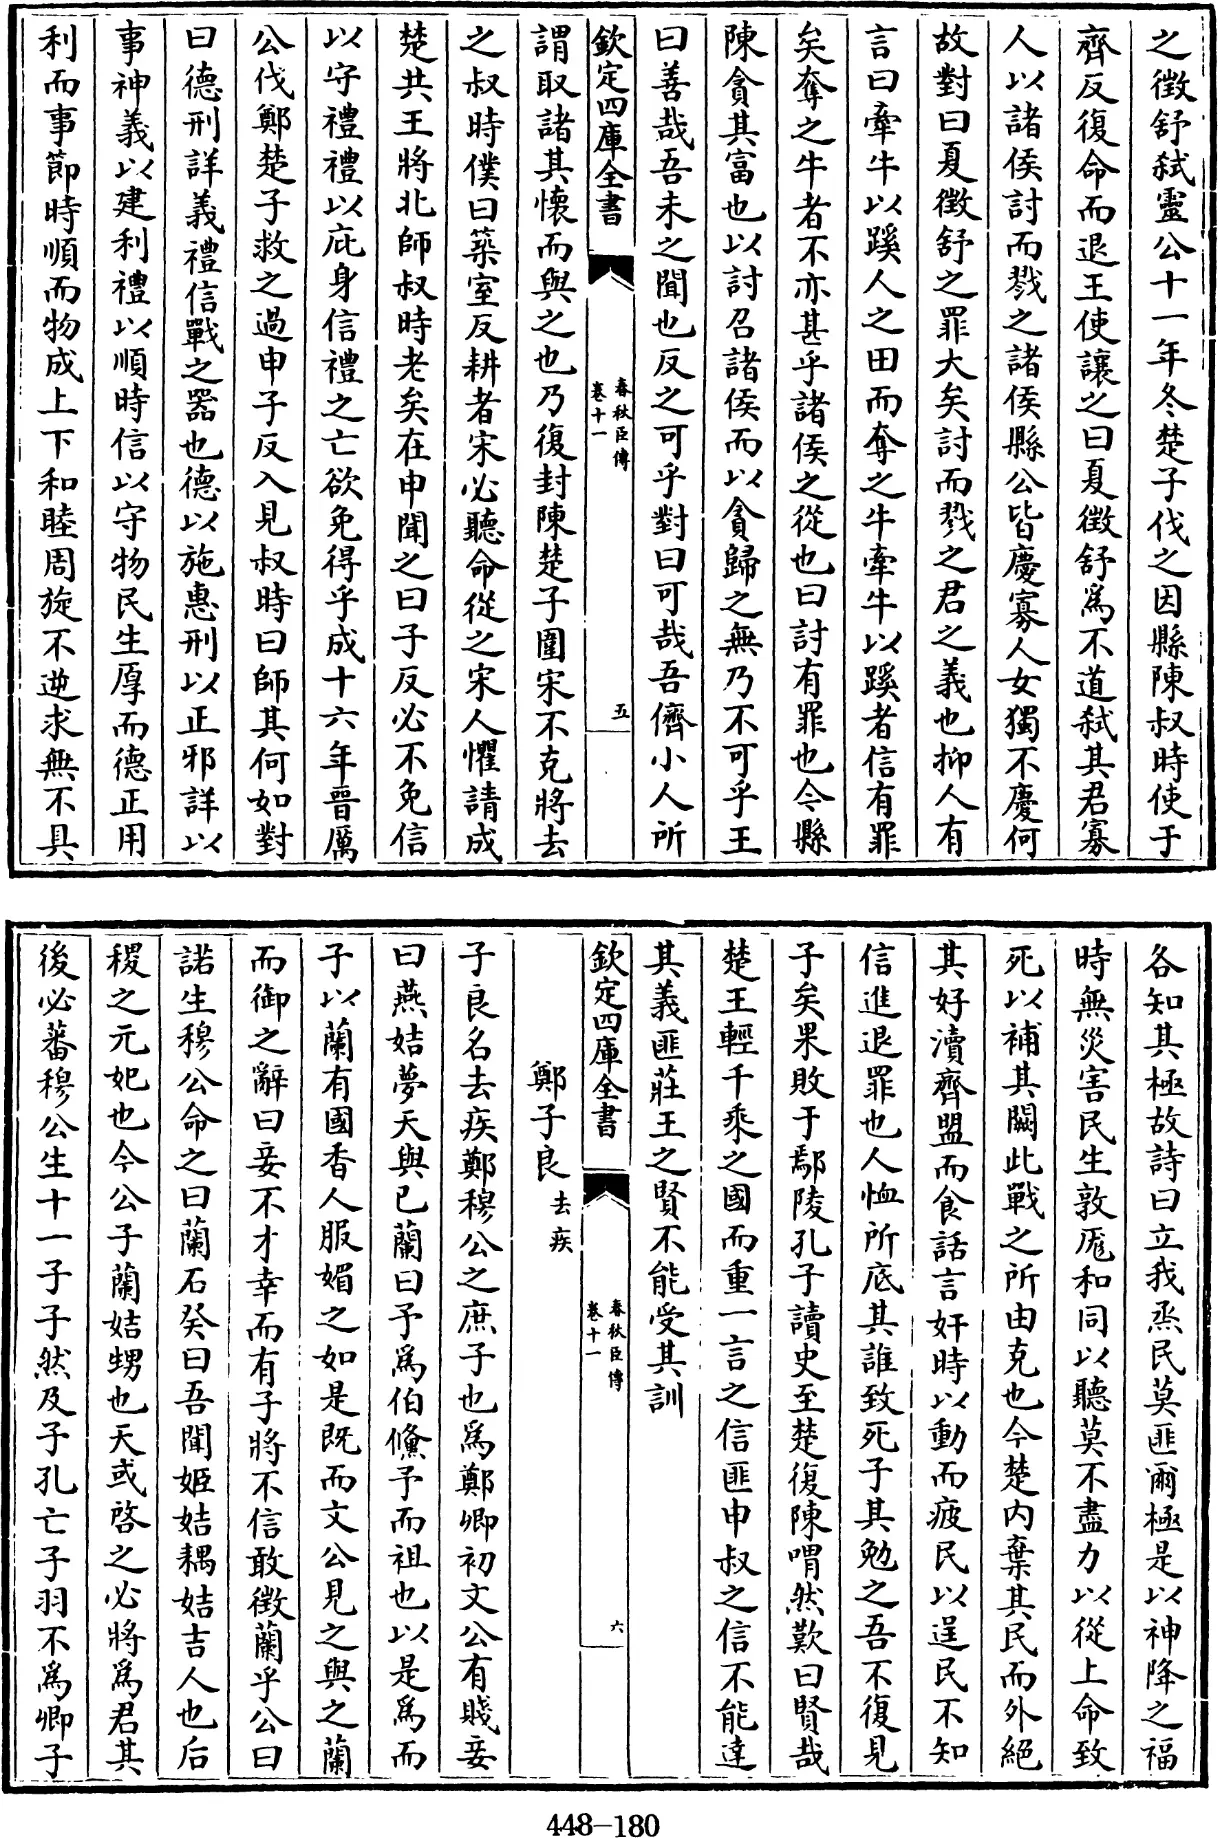 之徵舒弑靈公十一年冬楚子伐之因縣陳叔時使于
齊反復命而退王使讓之曰夏徵舒為不道弑其君寡
人以諸侯討而戮之諸侯縣公皆慶寡人女獨不慶何
故對曰夏徵舒之罪大矣討而戮之君之義也抑人有
言曰牽牛以蹊人之田而奪之牛牽牛以蹊者信有罪
矣奪之牛者不亦甚乎諸侯之從也曰討有罪也今縣
陳貪其富也以討召諸侯而以貪歸之無乃不可乎王
曰善哉吾未之聞也反之可乎對曰可哉吾儕小人所
欽定四庫全書
春秋臣傳
卷十一
五
謂取諸其懷而與之也乃復封陳楚子圍宋不克將去
之叔時僕曰築室反耕者宋必聽命從之宋人懼請成
楚共王將北師叔時老矣在申聞之曰子反必不免信
以守禮禮以庇身信禮之亡欲免得乎成十六年晉厲
公伐鄭楚子救之過申子反入見叔時曰師其何如對
曰德刑詳義禮信戰之器也德以施惠刑以正邪詳以
事神義以建利禮以順時信以守物民生厚而德正用
利而事節時順而物成上下和睦周旋不逆求無不具
各知其極故詩曰立我烝民莫匪爾極是以神降之福
時無災害民生敦厖和同以聽莫不盡力以從上命致
死以補其闕此戰之所由克也今楚內棄其民而外絕
其好瀆齊盟而食話言奸時以動而疲民以逞民不知
信進退罪也人恤所底其誰致死子其勉之吾不復見
子矣果敗于鄢陵孔子讀史至楚復陳喟然歎曰賢哉
楚王輕千乘之國而重一言之信匪申叔之信不能達
其義匪莊王之賢不能受其訓
欽定四庫全書
春秋臣傳
卷十一
六
鄭子良去疾
子良名去疾鄭穆公之庶子也為鄭卿初文公有賤妾
曰燕姞夢天與已蘭曰予為伯鯈予而祖也以是為而
子以蘭有國香人服媚之如是既而文公見之與之蘭
而御之辭曰妾不才幸而有子將不信敢徵蘭乎公曰
諾生穆公命之曰蘭石癸曰吾聞姬姞耦姞吉人也后
稷之元妃也今公子蘭姞甥也天或啓之必將為君其
後必蕃穆公生十一子子然及子孔亡子羽不為卿子
448-180